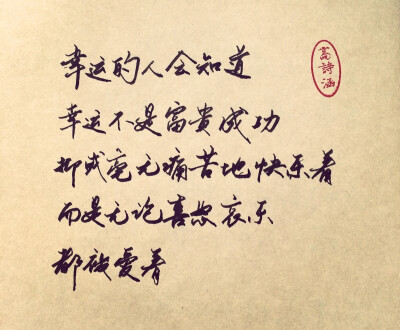 幸运的人会知道
幸运不是富貴成功
抑或毫无痛苦地快乐着
而是无论喜怒哀乐
都被愛着
富詩涵